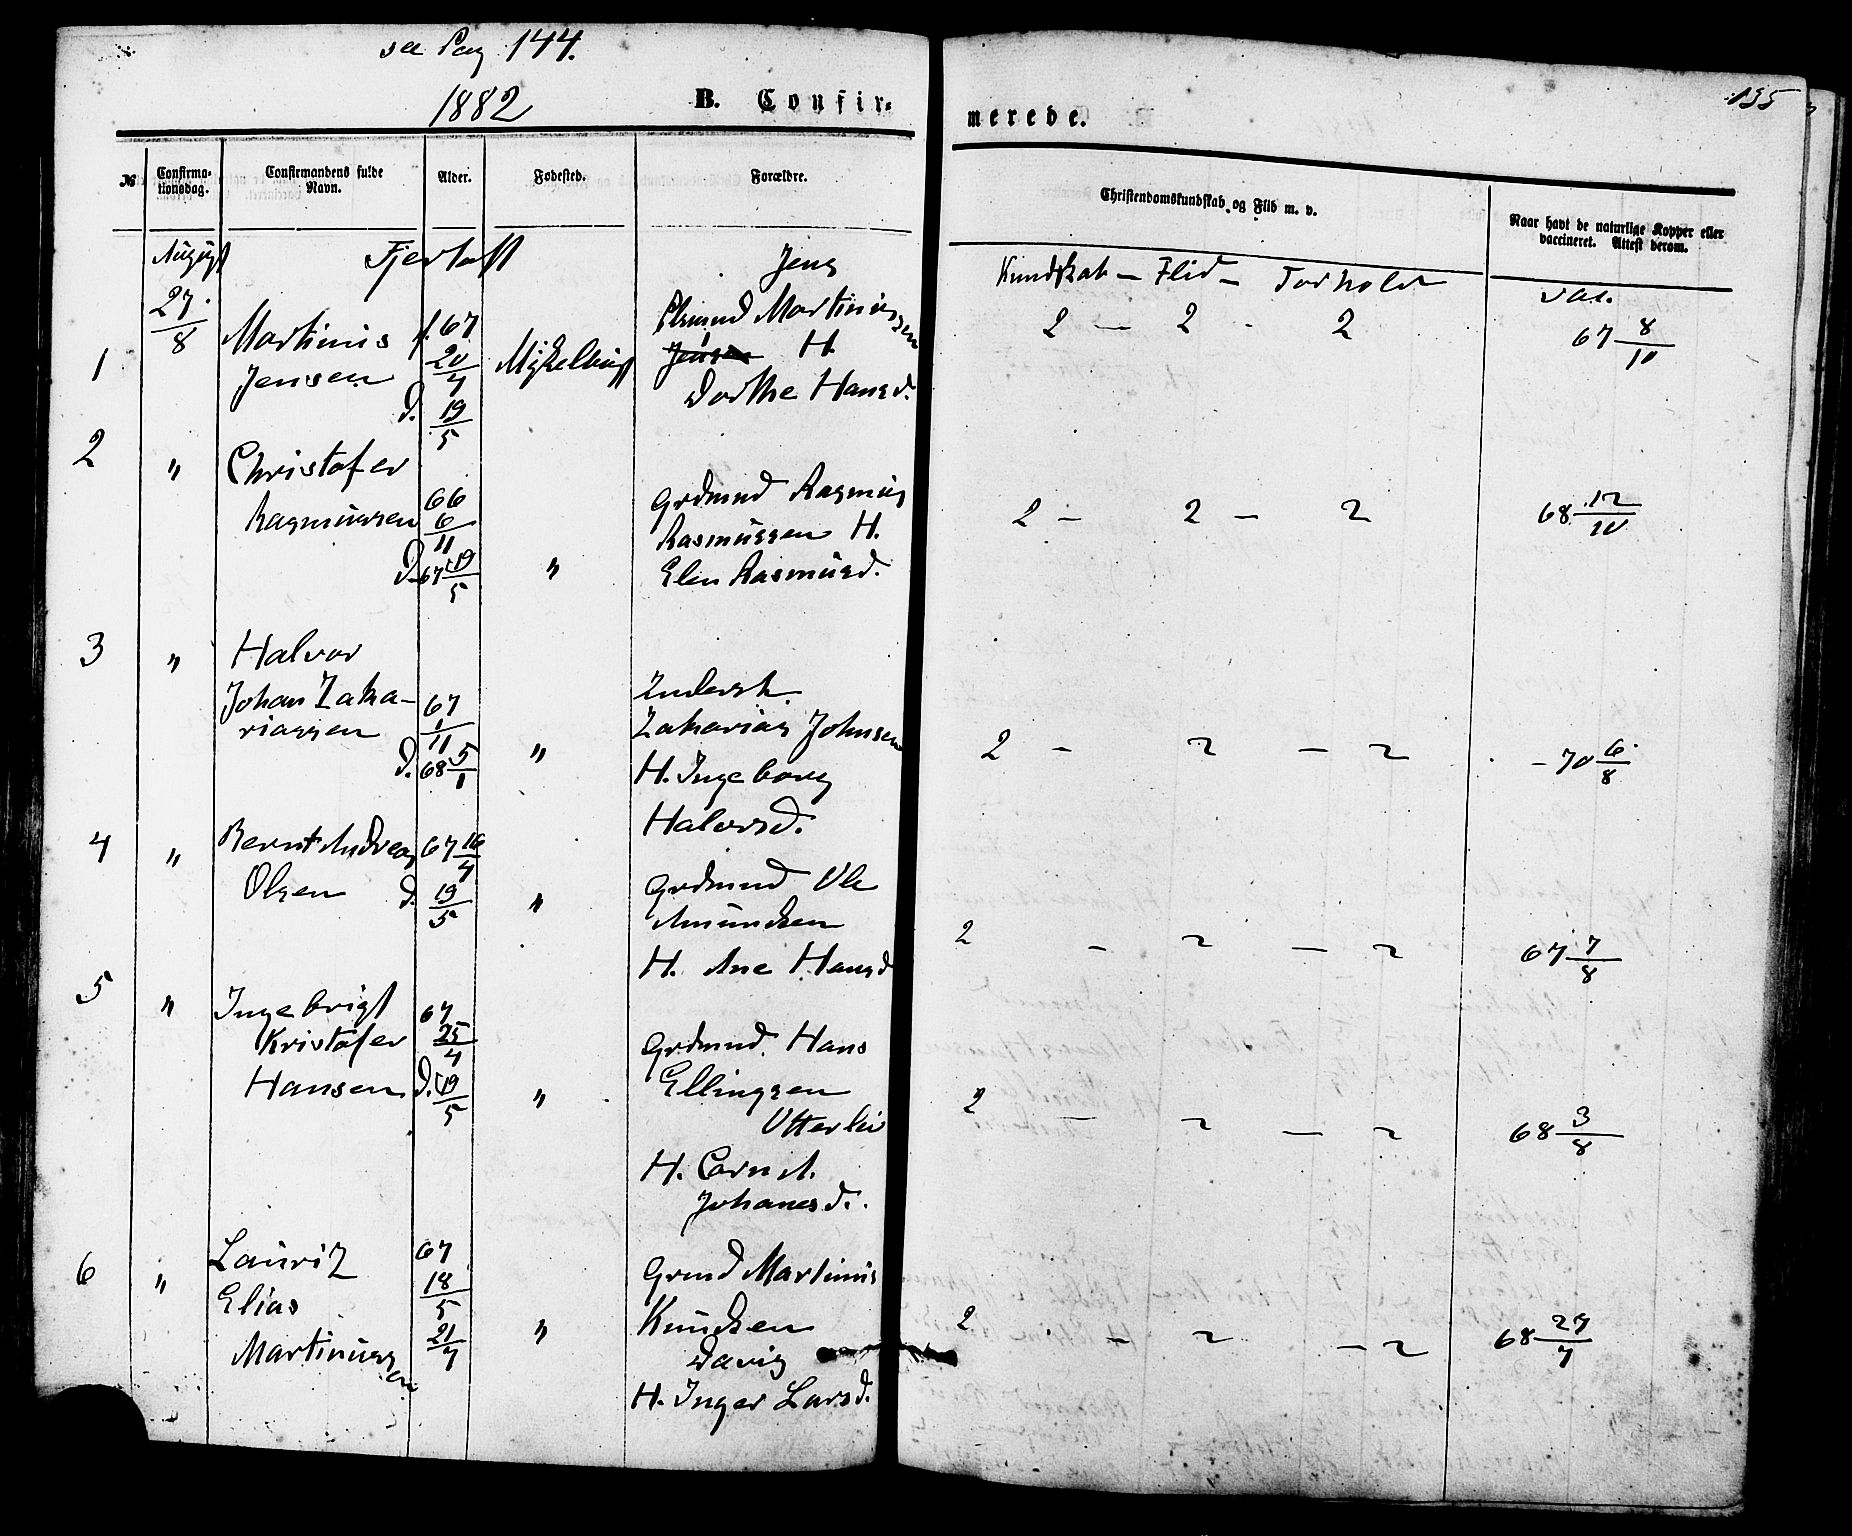 see Pag 144.
1882 B. Confir-
merede.
155
№ Confirma-tionsdag. Confirmandens fulde Navn. Alder. Fødested. Forældre. Christendomskundskab og Flid m. v. Naar havt de naturlige Kopper eller vaccineret. Attest derom.
August Fjertoft Kundskab - Flid - Forhold vac.
1 27/8 Martinus Jensen f. 67 20/4 d. 19/5
Jens
Martinussen
H.
Dorthe Hansd.
2 - 2 - 2 67 8/10
2 " Christofer
Rasmussen 66 6/11 d. 67 19/5 "
Grdmnd Rasmus
Rasmussen H.
Elen Rasmusd.
2 - 2 - 2 68 12/10
3 " Halvor
Johan Zaka-
riassen 67 1/11 d. 68 5/1 "
Inderst.
Zakarias Johnsen
H. Ingeborg
Halvorsd.
2 - 2 - 2 - 70 6/8
4 " Bernt Andreas
Olsen 67 16/4 d. 19/5 "
Grdmnd Ole
Amundsen
H. Ane Hansd
2 - 2 - 2 67 7/8
5 " Ingebrigt
Kristofer
Hansen 67 25/4 d. 19/5 "
Grdmnd. Hans
Ellingsen
Otterlei
H. Corn A.
Johanesd.
2 - 2 - 2 68 3/8
6 " Lauritz
Elias
Martinussen 67 18/5 21/7 "
Grmd Martinus
Knudsen
Davig
H. Inger Larsd.
2 - 2 - 2 68 27/7